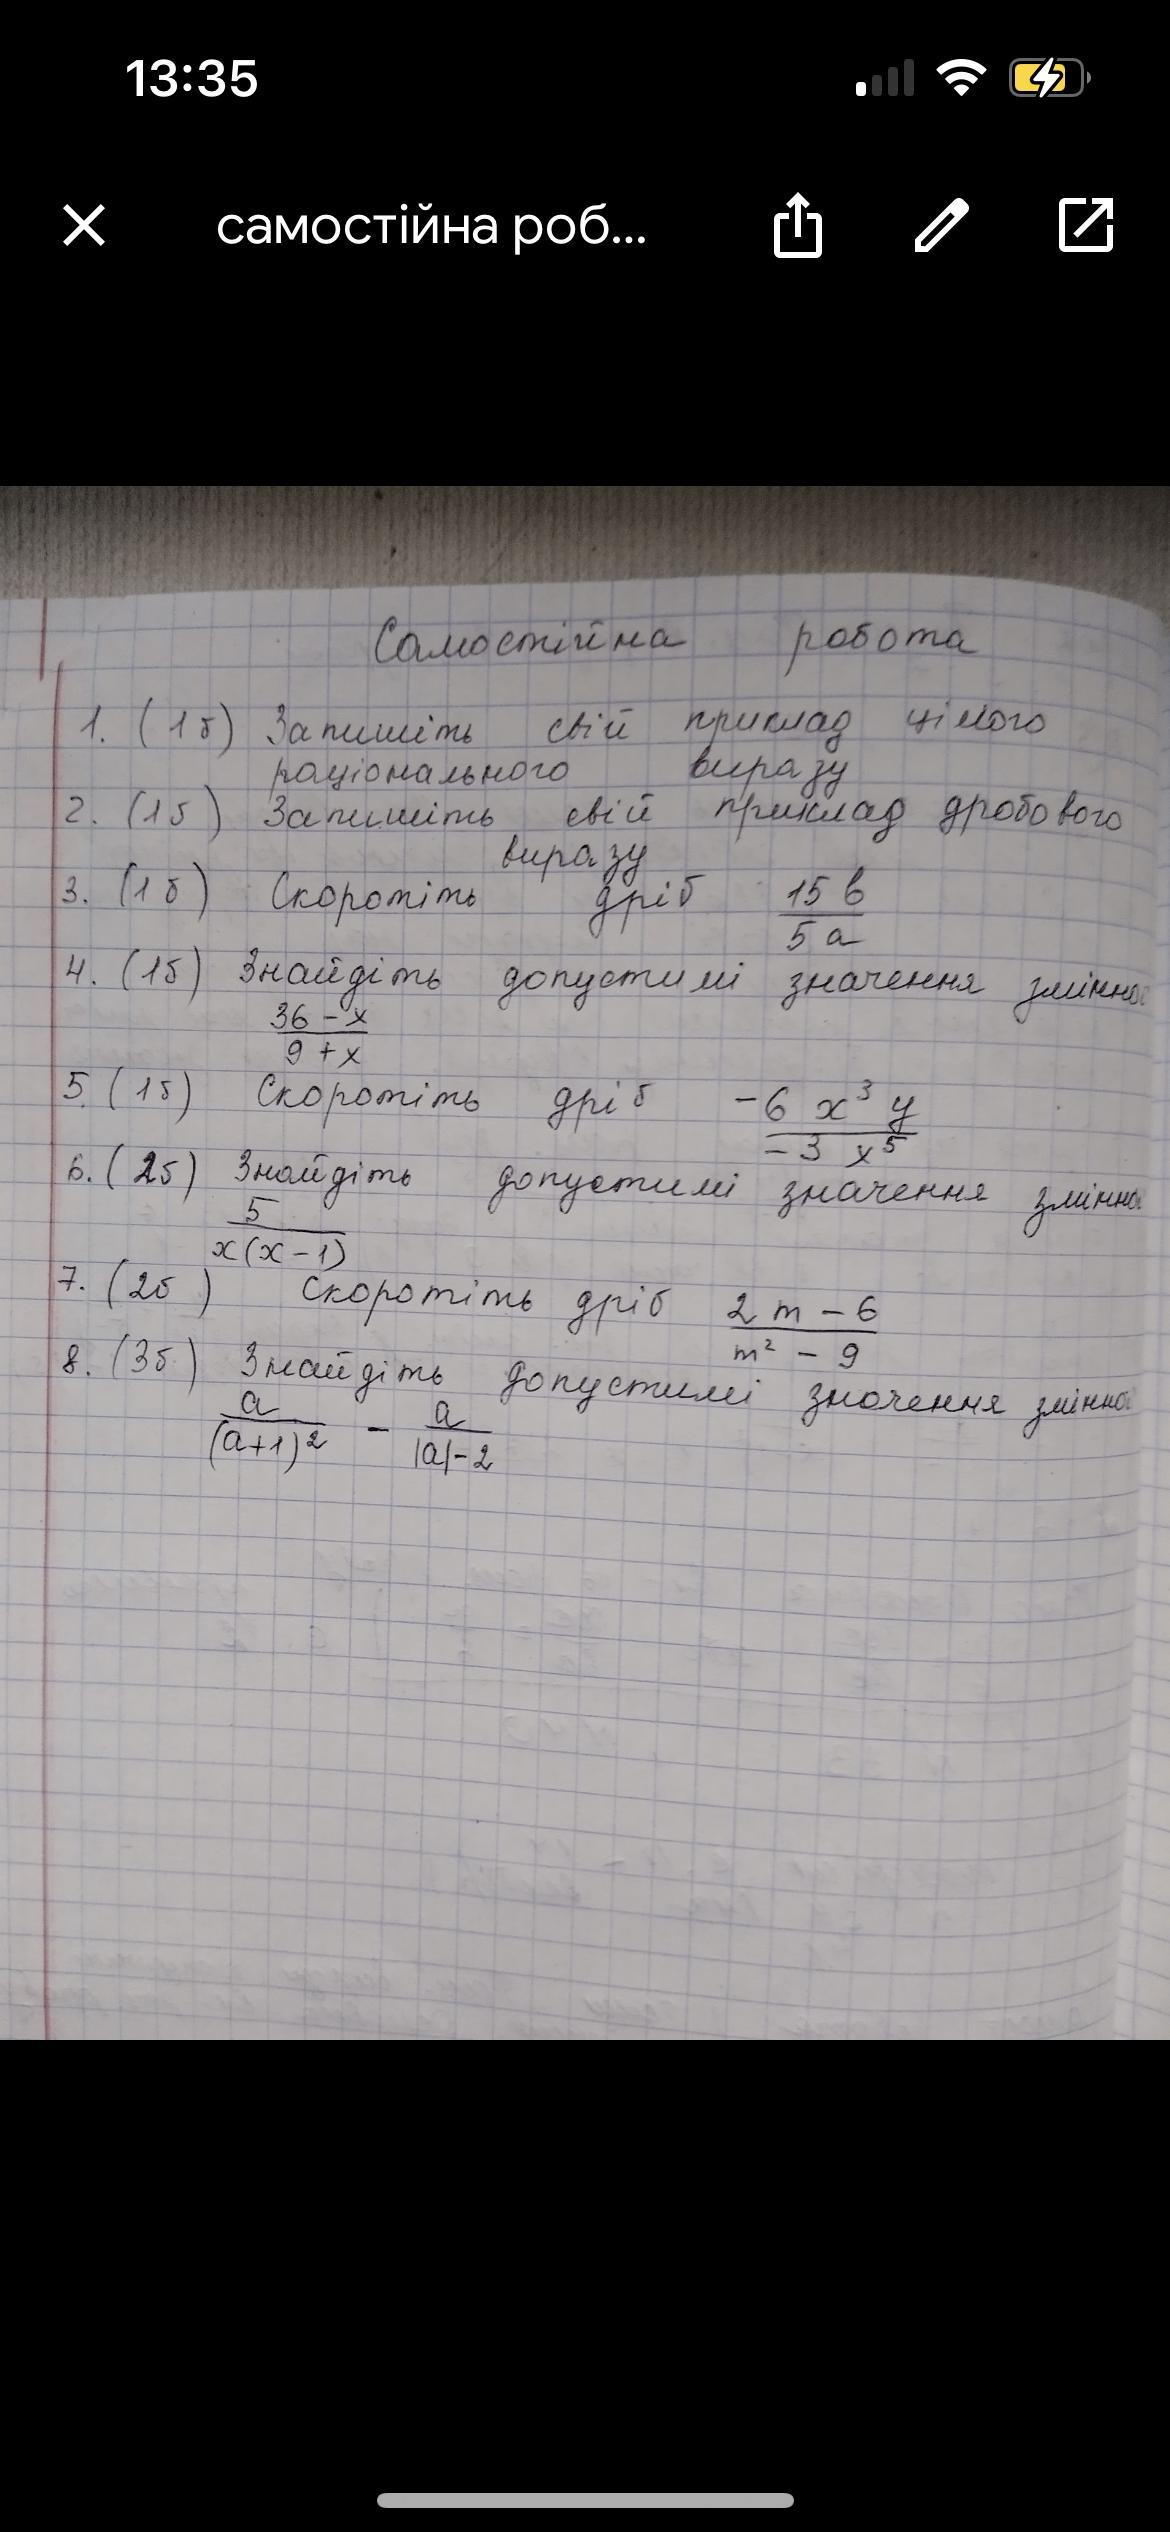 13:35
самостійна роб...
Самостійна робота
1. (1б) Запишіть свій приклад цілого
раціонального виразу
2. (1б) Запишіть свій приклад дробового
виразу
3. (1б) Скоротіть дріб 15в/5а
4. (1б) Знайдіть допустимі значення змінної
36-x/9+x
5. (1б) Скоротіть дріб -6x³y/-3x⁵
6. (2б) Знайдіть допустимі значення змінної
5/x(x-1)
7. (2б) Скоротіть дріб 2m-6/m²-9
8. (3б) Знайдіть допустимі значення змінної
a/(a+1)² - a/|a|-2